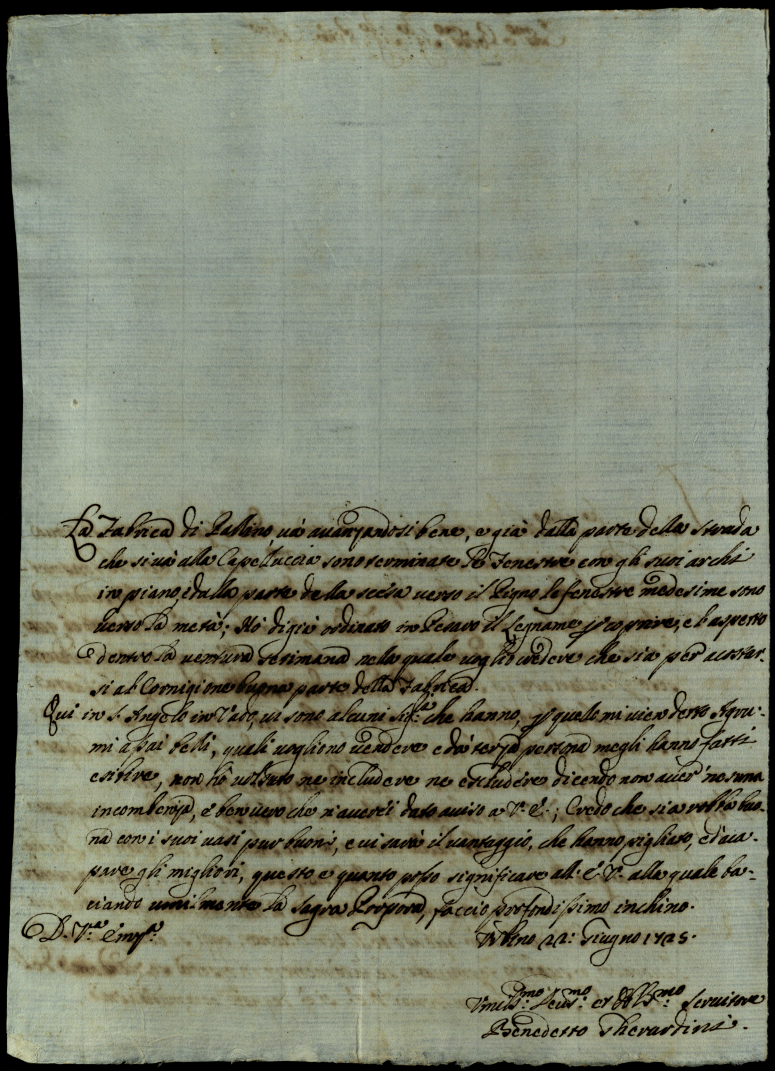 La Fabrica di Pallino và avanzandosi bene, e già dalla parte della strada
che si và alla Capelluccia sono terminate le Fenestre con gli suoi archi
in piano, e dalla parte della scesa verso il Pigno le fenestre medesime sono
verso la metà; Hò digià ordinato in Pesaro il Legname p coprire, e l'aspetto
dentro la ventura setimana nella quale voglio credere che sia per acostar-
si al Cornigione buona parte della Fabrica.
Qui in S. Angelo in Vado, vi sono alcuni Sig.ri che hanno, p quello mi vien detto Agru-
mi assai belli, quali vogliono vendere e da terza persona me gli hanno fatti
esibire, non hò voluto ne includere ne escludere dicendo non aver nesuna
incombenza, e ben vero che n'averei dato aviso a V. E.; Credo che sia robba buo-
na con i suoi vasi pur buoni, e vi sarà il vantaggio, che hanno pigliato, e d'aca-
pare gli migliori, questo e quanto posso significare all' E. V. alla quale ba-
ciando umilmente la Sagra Porpora, faccio profondissimo inchino.
D. V.ra Em.za
Urbino 22: Giugno 1725.
Umiliss.mo Dev.mo et Obb.mo Servitore
Benedetto Gherardini.